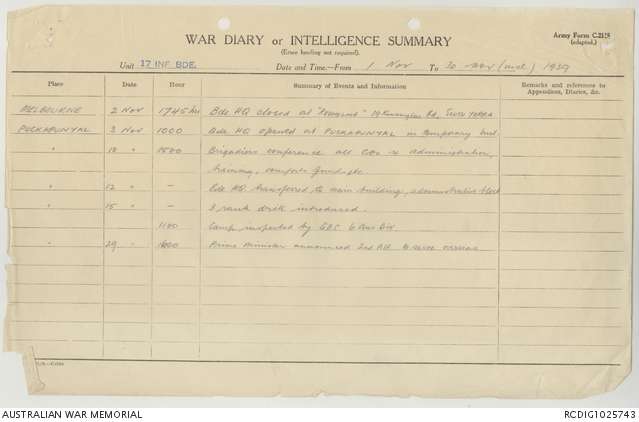 WAR DIARY or INTELLIGENCE SUMMARY
(Erase heading not required).
Army Form C.2118
(adapted.)
Unit 17 INF BDE. Date and Time—From 1 Nov To 30 Nov (incl) 1939
Place Date Hour Summary of Events and Information Remarks and references to Appendices, Diaries, &c.
MELBOURNE 2 Nov 1745 hrs Bde HQ closed at Rd, SOUTH YARRA
PUCKAPUNYAL 3 Nov 1000 Bde HQ opened at PUCKAPUNYAL in temporary hut
" " 1500 Brigadiers conference all COs re administration,
training, comforts funds etc
" 12 " — Bde HQ transferred to main building, administrative block
" 15 " — 3 rank drill introduced.
1100 Camp inspected by GOC 6 Aus Div.
" 29 " Prime Minister announced 2nd AIF to serve overseas
AUSTRALIAN WAR MEMORIAL
RCDIG1025743